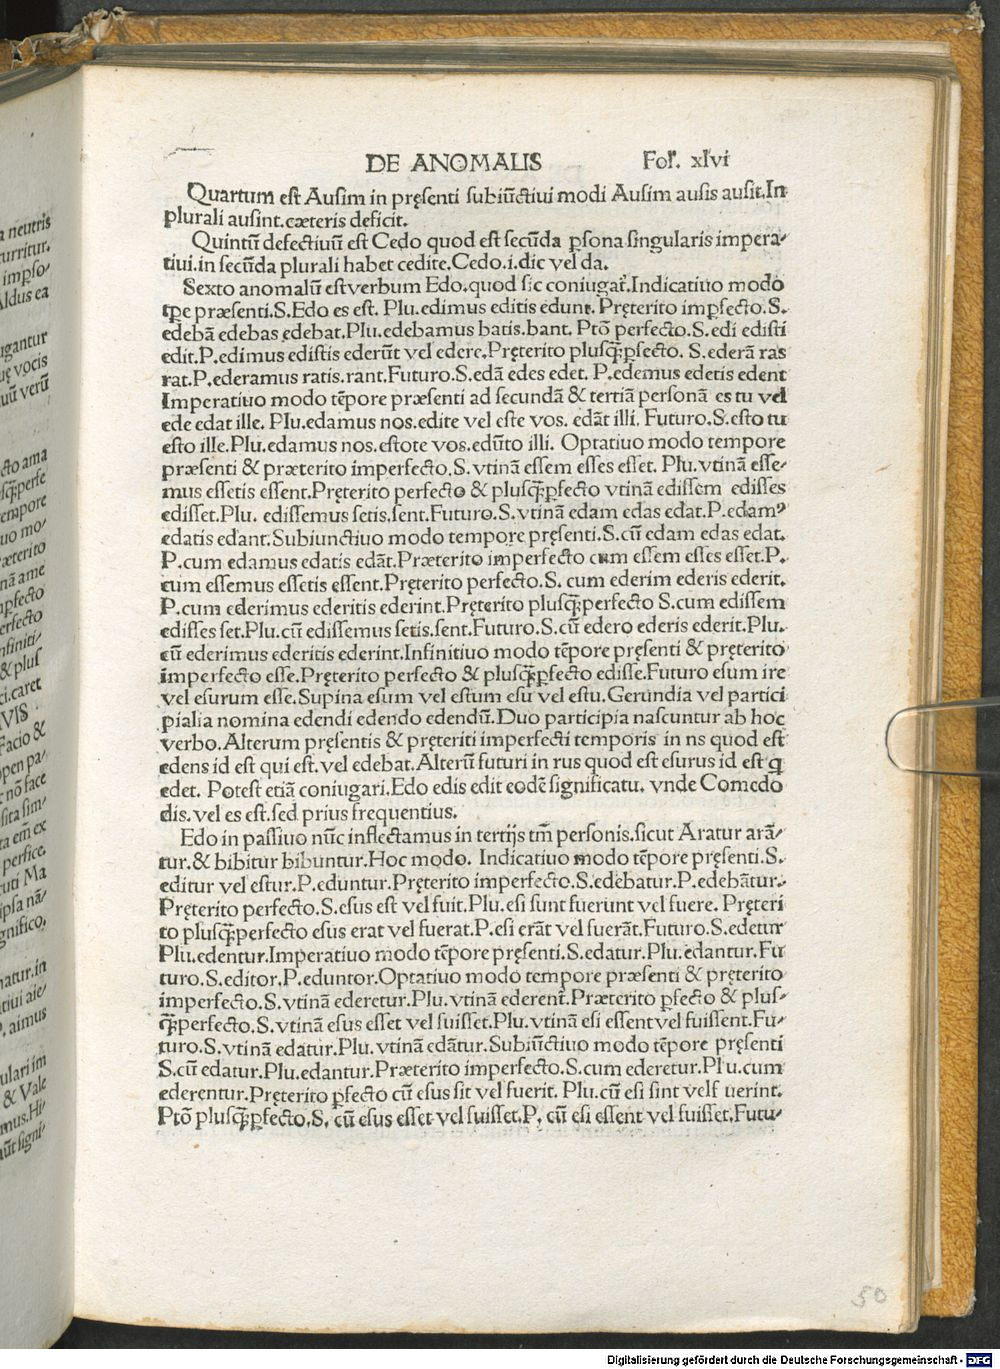 a neutris
turritur.
impso/
Aldus ea
ugantur
uę vocis
uū verū
cto ama
usq̃;perfe
tempore
uo mo/
ræterito
nā ame
mpfecto
perfecto
nfiniti/
& pluſ
ci.caret
IVIS
Facio &
open pa/
t nō face
ſita ſim/
ta em̄ ex
perfice.
cuti Ma
ipſa nā/
gnifico.
natur.in
tiui aie/
P. aimus
gulari im
& Vale
mus.Hi/
aūt signi/
DE ANOMALIS Foľ. xlvi
Quartum eſt Auſim in pręſenti ſubiūctiui modi Auſim auſis auſit.In
plurali auſint.cæteris deficit.
Quintū defectiuū eſt Cedo quod eſt ſecūda ꝑſona ſingularis impera/
tiui.in ſecūda plurali habet cedite.Cedo.i.dic vel da.
Sexto anomalū eſt verbum Edo.quod ſic coniugať.Indicatiuo modo
tꝑe præſenti.S.Edo es eſt. Plu.edimus editis edunt. Pręterito imꝑfecto.S.
edebā edebas edebat.Plu.edebamus batis.bant. Ptō perfecto.S.edi ediſti
edit.P.edimus ediſtis ederūt vel edere.Pręterito pluſq̃;ꝑfecto. S.ederā ras
rat.P.ederamus ratis.rant.Futuro.S.edā edes edet. P.edemus edetis edent
Imperatiuo modo tēpore præſenti ad ſecundā & tertiā perſonā es tu vel
ede edat ille. Plu.edamus nos.edite vel eſte vos. edāt illi. Futuro.S.eſto tu
eſto ille.Plu.edamus nos.eſtote vos.edūto illi. Optatiuo modo tempore
præſenti & præterito imperfecto.S.vtinā eſſem eſſes eſſet. Plu.vtinā eſſe/
mus eſſetis eſſent.Pręterito perfecto & pluſq̃;ꝑfecto vtinā ediſſem ediſſes
ediſſet.Plu. ediſſemus ſetis.ſent.Futuro.S.vtinā edam edas edat.P.edamꝰ
edatis edant.Subiunctiuo modo tempore pręſenti.S.cū edam edas edat.
P.cum edamus edatis edāt.Præterito imperfecto cum eſſem eſſes eſſet.P.
cum eſſemus eſſetis eſſent.Pręterito perfecto.S. cum ederim ederis ederit.
P.cum ederimus ederitis ederint.Pręterito pluſq̃;perfecto S.cum ediſſem
ediſſes ſet.Plu.cū ediſſemus ſetis.ſent.Futuro.S.cū edero ederis ederit.Plu.
cū ederimus ederitis ederint.Infinitiuo modo tēpore pręſenti & pręterito
imperfecto eſſe.Pręterito perfecto & pluſq̃;ꝑfecto ediſſe.Futuro eſum ire
vel eſurum eſſe.Supina eſum vel eſtum eſu vel eſtu.Gerundia vel partici
pialia nomina edendi edendo edendū.Duo participia naſcuntur ab hoc
verbo.Alterum pręſentis & pręteriti imperfecti temporis in ns quod eſt
edens id eſt qui eſt.vel edebat.Alterū futuri in rus quod eſt eſurus id eſt q̃
edet. Poteſt etiā coniugari.Edo edis edit eodē ſignificatu. vnde Comedo
dis.vel es eſt.ſed prius frequentius.
Edo in paſſiuo nūc inflectamus in tertijs tm̄ perſonis.ſicut Aratur arā/
tur.& bibitur bibuntur.Hoc modo. Indicatiuo modo tēpore pręſenti.S.
editur vel eſtur.P.eduntur.Pręterito imperfecto.S.edebatur.P.edebātur.
Pręterito perfecto.S.eſus eſt vel fuit.Plu.eſi ſunt fuerunt vel fuere. Pręteri
to pluſq̃;perfecto eſus erat vel fuerat.P.eſi erāt vel fuerāt.Futuro.S.edetur
Plu.edentur.Imperatiuo modo tēpore pręſenti.S.edatur.Plu.edantur.Fu
turo.S.editor.P.eduntor.Optatiuo modo tempore præſenti & pręterito
imperfecto.S.vtinā ederetur.Plu.vtinā ederenť.Præterito ꝑfecto & pluſ/
q̃;perfecto.S.vtinā eſus eſſet vel fuiſſet.Plu.vtinā eſi eſſent vel fuiſſent.Fu/
turo.S.vtinā edatur.Plu.vtinā edātur.Subiūctiuo modo tēpore pręſenti
S.cū edatur.Plu.edantur.Præterito imperfecto.S.cum ederetur.Plu.cum
ederentur.Pręterito ꝑfecto cū eſus ſit vel fuerit. Plu.cū eſi ſint velf uerint.
Ptō pluſq̃;ꝑfecto.S. cū eſus eſſet vel fuiſſet.P. cū eſi eſſent vel fuiſſet.Futu/
50
Digitalisierung gefördert durch die Deutsche Forschungsgemeinschaft - DFG